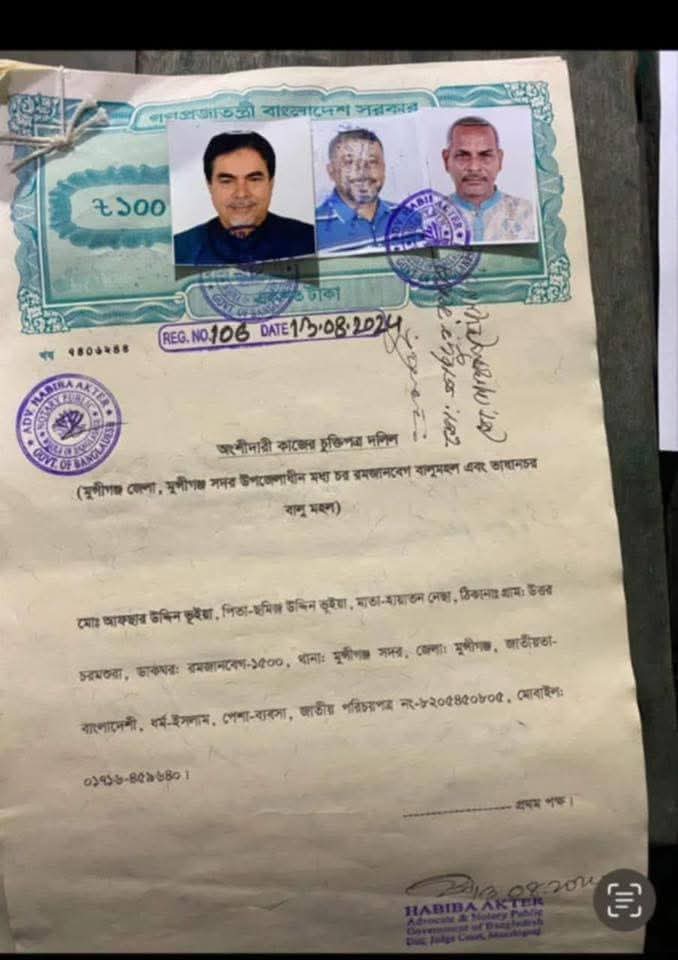 গণপ্রজাতন্ত্রী বাংলাদেশ সরকার
৳১০০
টাকা
REG. NO. 106 DATE 13.08.2024
ADV. HABIBA AKTER
NOTARY PUBLIC
GOVT. OF BANGLADESH
অংশীদারী কাজের চুক্তিপত্র দলিল
(মুন্সীগঞ্জ জেলা, মুন্সীগঞ্জ সদর উপজেলাধীন মধ্য চর রমজানবেগ বালুমহল এবং ভাষানচর
বালু মহল)
মোঃ আফছার উদ্দিন ভূইয়া, পিতা-ছমিজ উদ্দিন ভূইয়া, মাতা-হায়াতন নেছা, ঠিকানাঃ গ্রাম: উত্তর
চরমশুরা, ডাকঘর: রমজানবেগ-১৫০০, থানা: মুন্সীগঞ্জ সদর, জেলা: মুন্সীগঞ্জ, জাতীয়তা-
বাংলাদেশী, ধর্ম-ইসলাম, পেশা-ব্যবসা, জাতীয় পরিচয়পত্র নং-৮২০৫৪৫০৮০৫, মোবাইল:
০১৭১৬-৪৫৯৬৪০।
প্রথম পক্ষ।
HABIBA AKTER
Advocate & Notary Public
Government of Bangladesh
Dist. Judge Court, Munshiganj